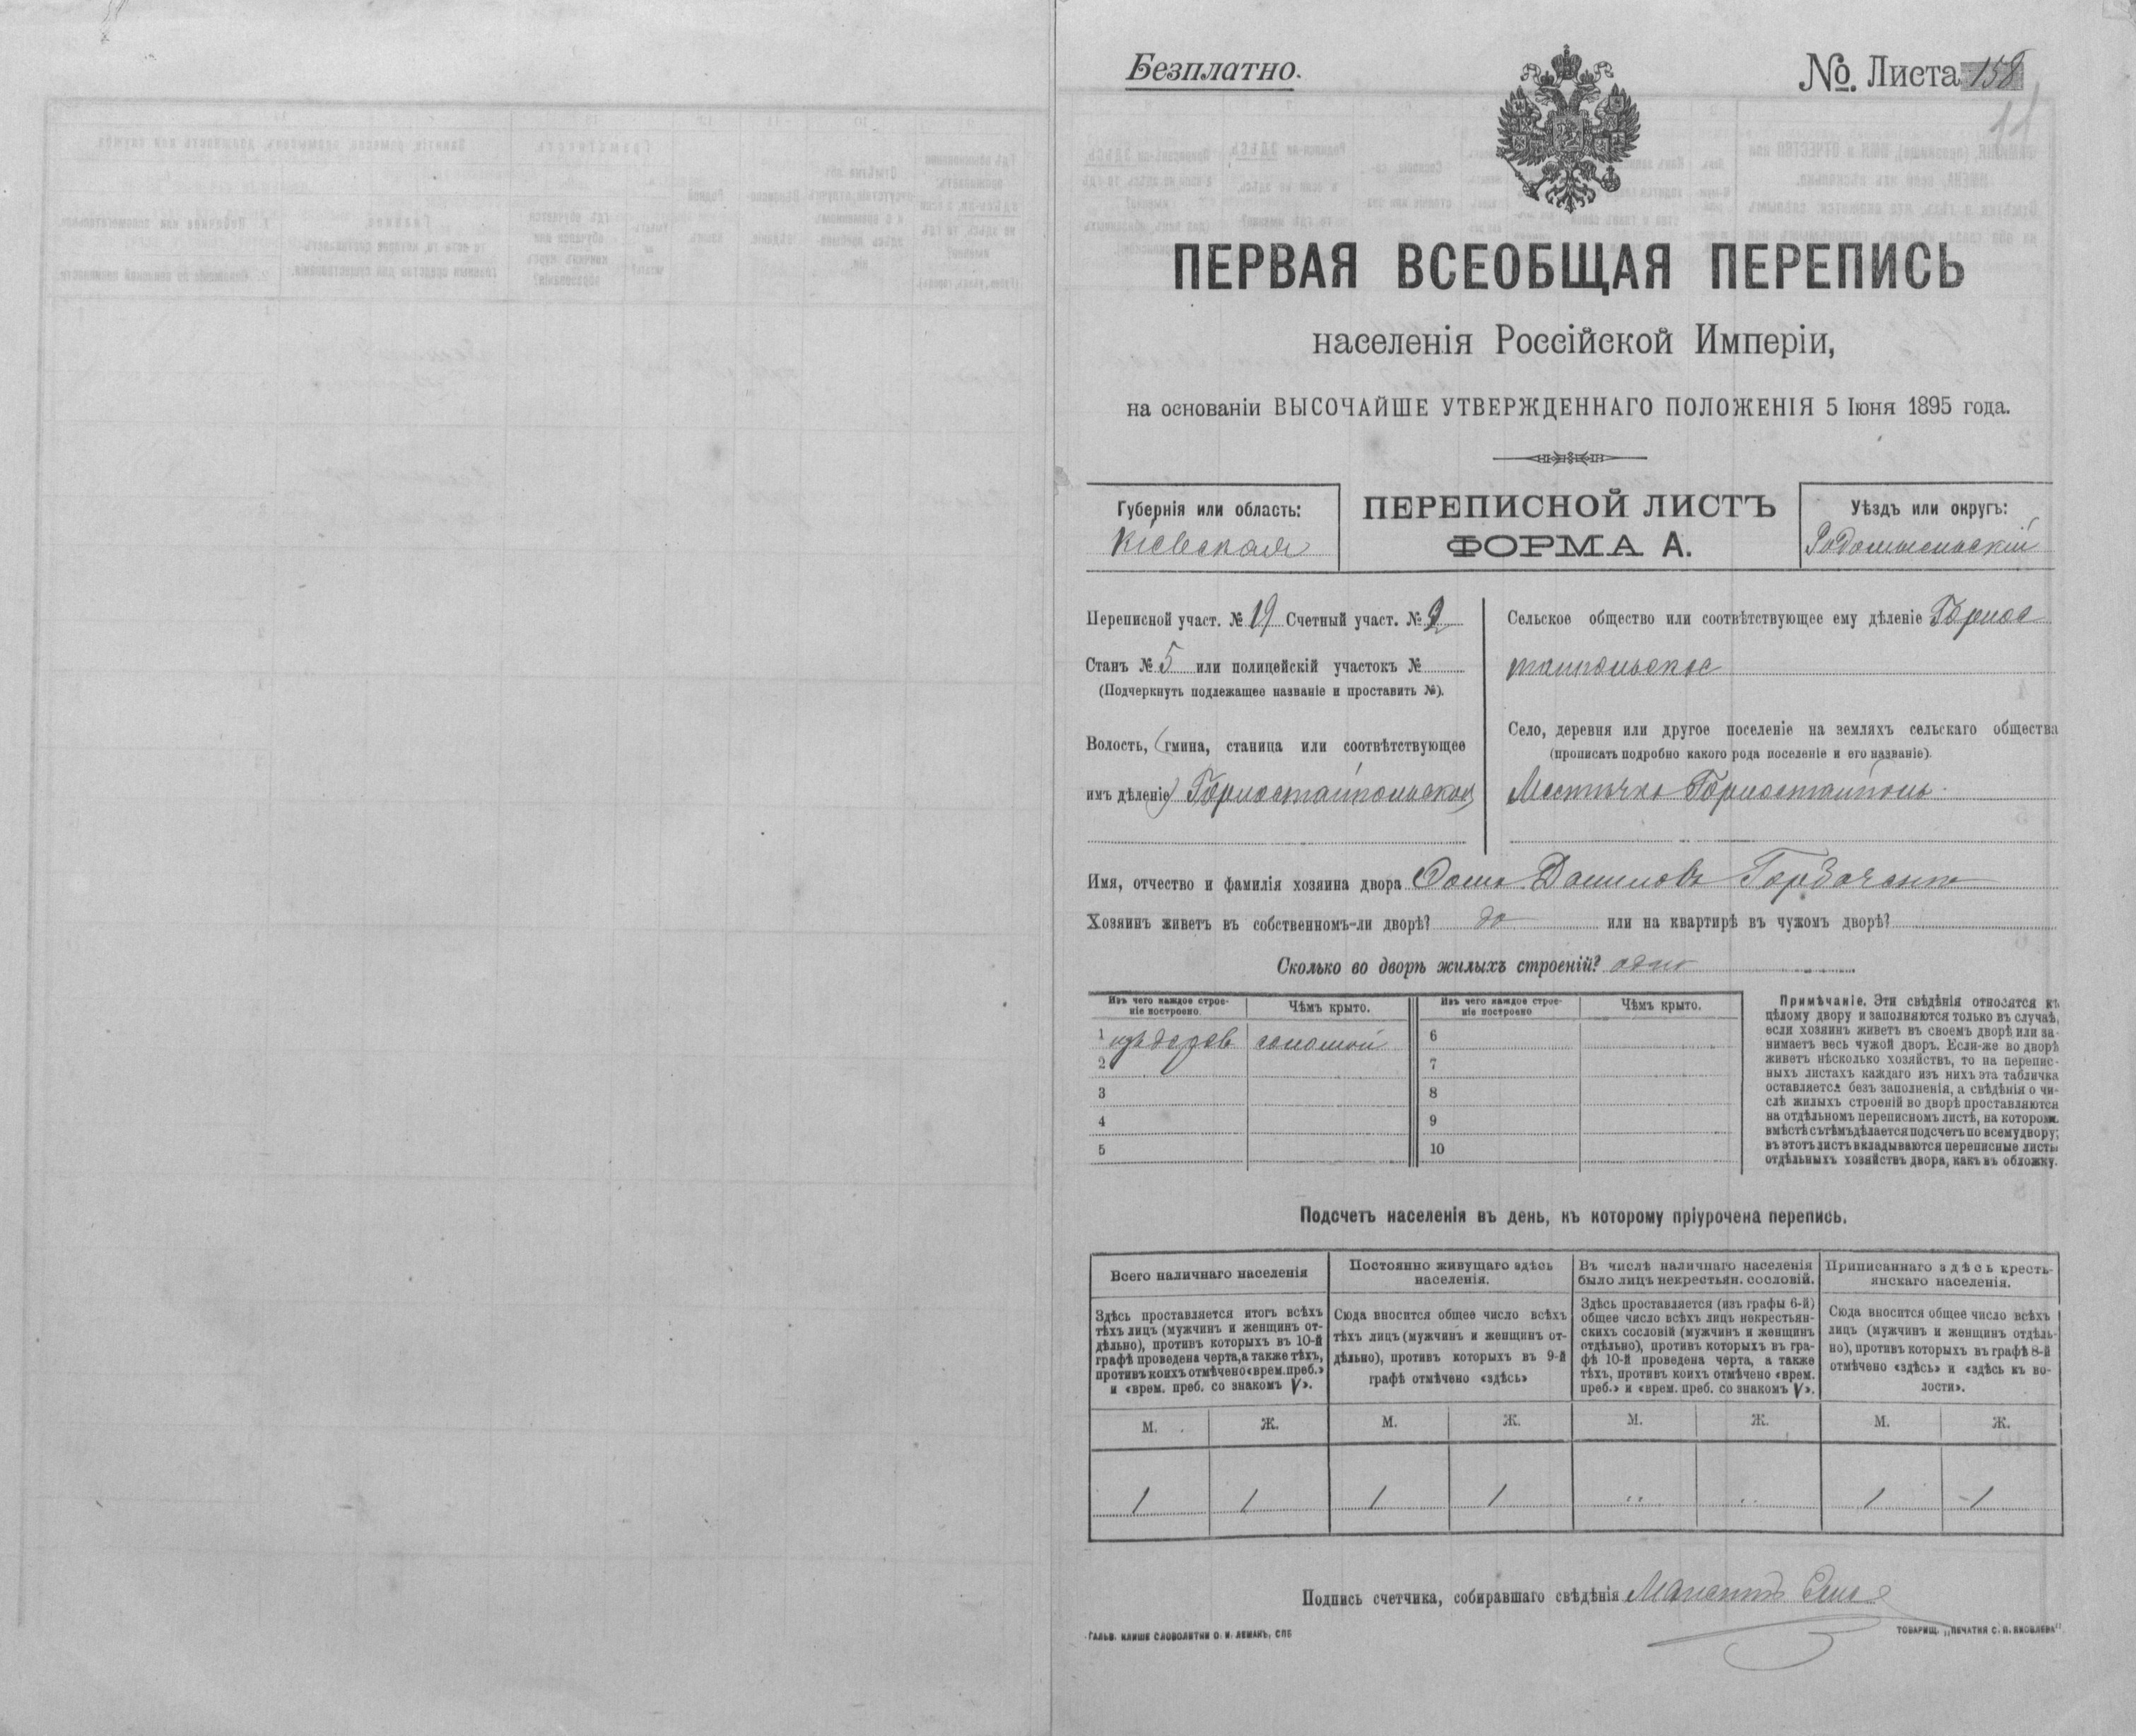 Безплатно.
№. Листа 158
11
ПЕРВАЯ ВСЕОБЩАЯ ПЕРЕПИСЬ
населенія Россійской Имперіи,
на основаніи ВЫСОЧАЙШЕ УТВЕРЖДЕННАГО ПОЛОЖЕНІЯ 5 Іюня 1895 года.
Губернія или область:
Кіевская
ПЕРЕПИСНОЙ ЛИСТЪ
ФОРМА А.
Уѣздъ или округъ:
Радомысльскій
Переписной участ. № 19 Счетный участ. № 2
Станъ № 5 или полицейскій участокъ №
(Подчеркнуть подлежащее названіе и проставить №).
Волость, (гмина, станица или соотвѣтствующее
имъ дѣленіе) Горностайпольская
Сельское общество или соотвѣтствующее ему дѣленіе Горнос
тайпольское
Село, деревня или другое поселеніе на земляхъ сельскаго общества
(прописать подробно какого рода поселеніе и его названіе).
Местечко Горностайполь
Имя, отчество и фамилія хозяина двора Фома Даниловъ
Хозяинъ живетъ въ собственномъ-ли дворѣ? да или на квартирѣ въ чужомъ дворѣ?
Сколько во дворѣ жилыхъ строеній? одно
Изъ чего каждое строе-
ніе построено.
Чѣмъ крыто.
Изъ чего каждое строе-
ніе построено
Чѣмъ крыто.
1 изъ дерев соломой 6
2 7
3 8
4 9
5 10
Примѣчаніе. Эти свѣдѣнія относятся къ
цѣлому двору и заполняются только въ случаѣ,
если хозяинъ живетъ въ своемъ дворѣ или за-
нимаетъ весь чужой дворъ. Если-же во дворѣ
живетъ нѣсколько хозяйствъ, то на перепис-
ныхъ листахъ каждаго изъ нихъ эта табличка
оставляется безъ заполненія, а свѣдѣнія о чи-
слѣ жилыхъ строеній во дворѣ проставляются
на отдѣльномъ переписномъ листѣ, на которомъ
вмѣстѣ съ тѣмъ дѣлается подсчетъ по всему двору;
въ этотъ листъ вкладываются переписные листы
отдѣльныхъ хозяйствъ двора, какъ въ обложку.
Подсчетъ населенія въ день, къ которому пріурочена перепись.
Всего наличнаго населенія
Здѣсь проставляется итогъ всѣхъ
тѣхъ лицъ (мужчинъ и женщинъ от-
дѣльно), противъ которыхъ въ 10-й
графѣ проведена черта, а также тѣхъ,
противъ коихъ отмѣчено «врем. преб.»
и «врем. преб. со знакомъ V».
Постоянно живущаго здѣсь
населенія.
Сюда вносится общее число всѣхъ
тѣхъ лицъ (мужчинъ и женщинъ от-
дѣльно), противъ которыхъ въ 9-й
графѣ отмѣчено «здѣсь»
Въ числѣ наличнаго населенія
было лицъ некрестьян. сословій.
Здѣсь проставляется (изъ графы 6-й)
общее число всѣхъ лицъ некрестьян-
скихъ сословій (мужчинъ и женщинъ
отдѣльно), противъ которыхъ въ гра-
фѣ 10-й проведена черта, а также
тѣхъ, противъ коихъ отмѣчено «врем.
преб.» и «врем. преб. со знакомъ V».
Приписаннаго здѣсь кресть-
янскаго населенія.
Сюда вносится общее число всѣхъ
лицъ (мужчинъ и женщинъ отдѣль-
но), противъ которыхъ въ графѣ 8-й
отмѣчено «здѣсь» и «здѣсь къ во-
лости».
М. Ж. М. Ж. М. Ж. М. Ж.
1 1 1 1 " " 1 1
Подпись счетчика, собиравшаго свѣдѣнія
ГАЛЬВ. КЛИШЕ СЛОВОЛИТНИ О. И. ЛЕМАНЪ, СПБ
ТОВАРИЩ. „ПЕЧАТНЯ С. П. ЯКОВЛЕВА"